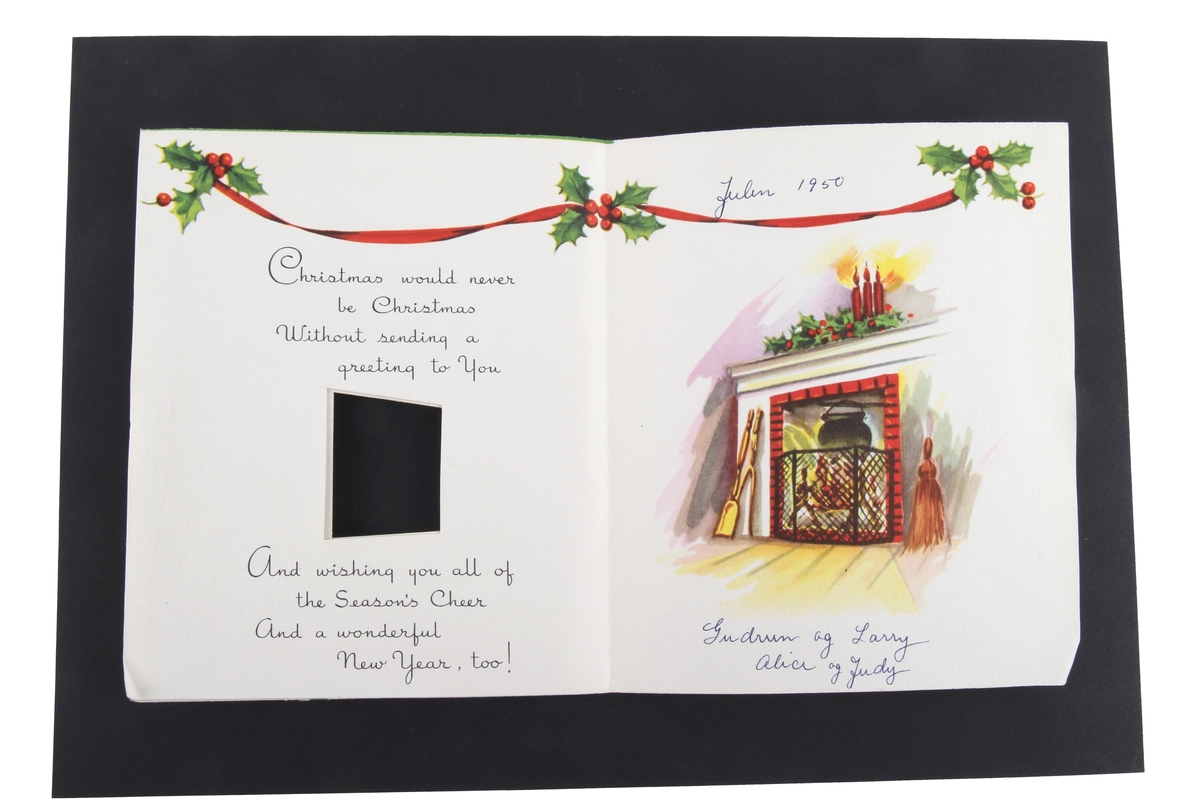 Christmas would never
be Christmas
Without sending a
greeting to You
And wishing you all of
the Season's Cheer
And a wonderful
New Year, too!
Julen 1950
Gudrun og Larry
Alice og Judy